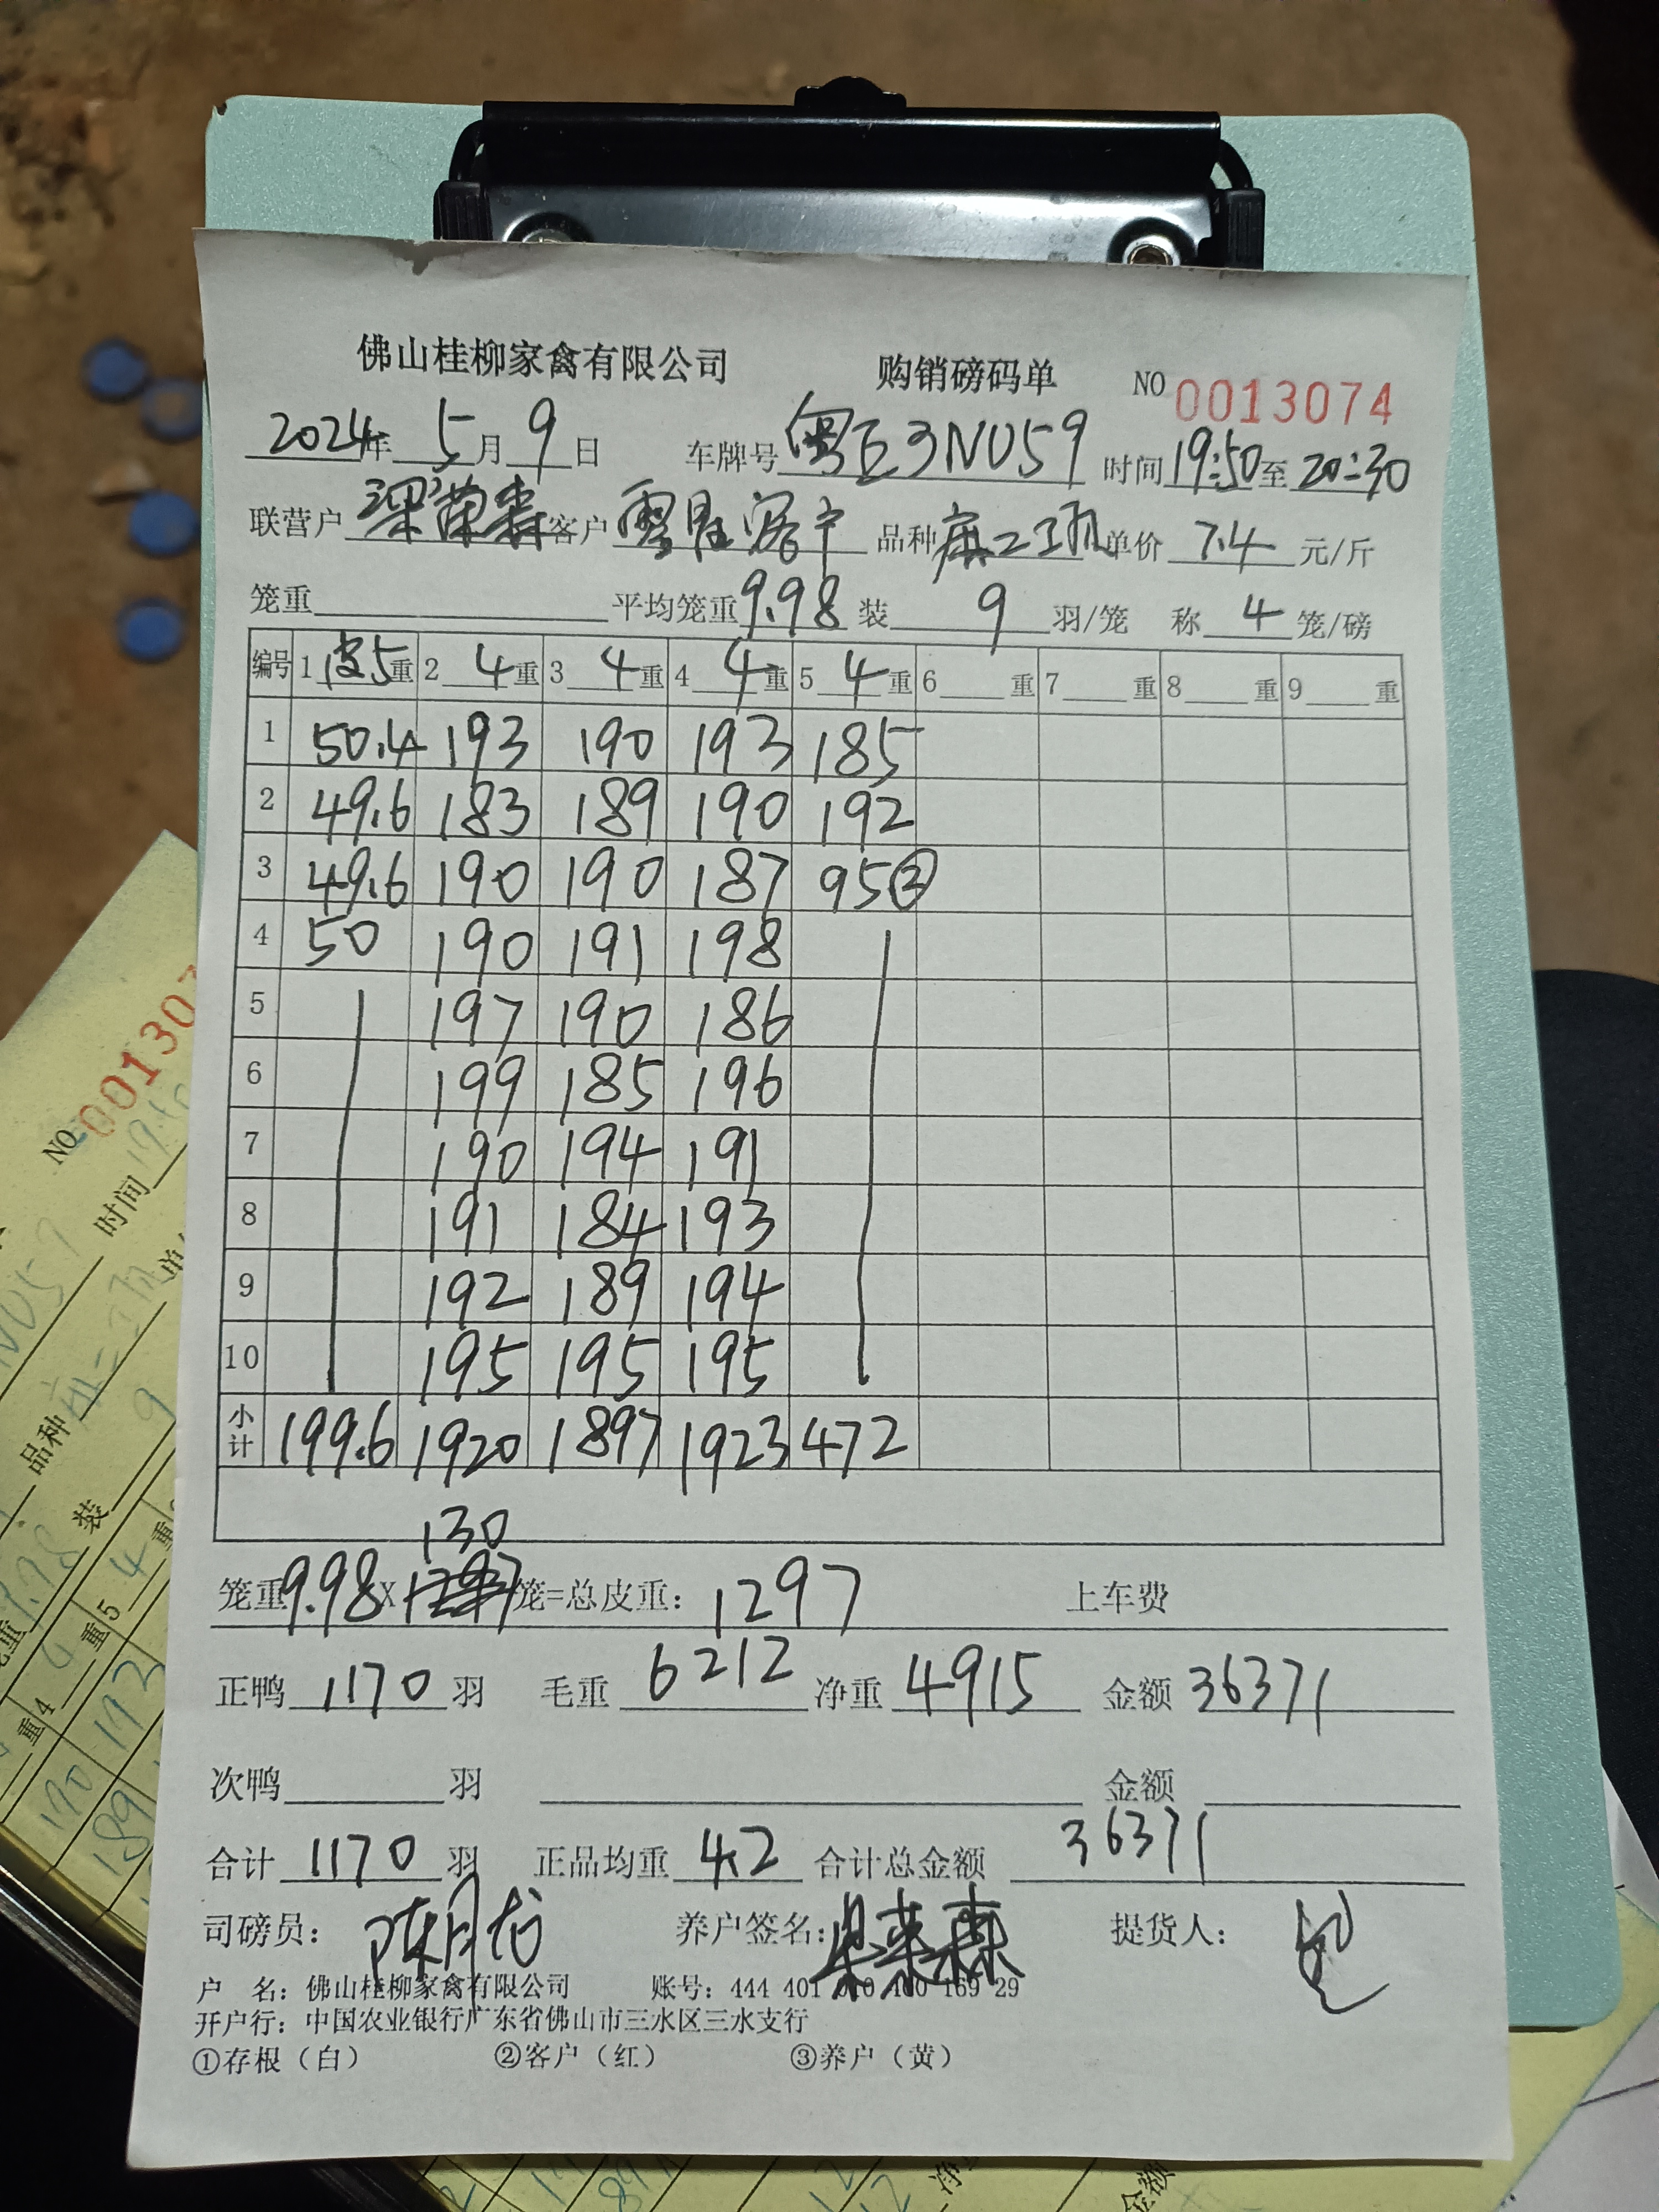 佛山桂柳家禽有限公司 购销磅码单 NO 0013074
2024年 5月 9日 车牌号 粤E3NU59 时间 19:50至 20:30
联营户 梁荣森 客户 品种 麻二 单价 7.4 元/斤
笼重 平均笼重 9.98 装 9 羽/笼 称 4 笼/磅
编号 1 皮5重 2 4重 3 4重 4 4重 5 4重 6 重 7 重 8 重 9 重
1 50.4 193 190 193 185
2 49.6 183 189 190 192
3 49.6 190 190 187 95②
4 50 190 191 198
5 197 190 186
6 199 185 196
7 190 194 191
8 191 184 193
9 192 189 194
10 195 195 195
小计 199.6 1920 1897 1923 472
130
笼重9.98X 笼=总皮重: 1297 上车费
正鸭 1170 羽 毛重 6212 净重 4915 金额 36371
次鸭 羽 金额
合计 1170 羽 正品均重 4.2 合计总金额 36371
司磅员: 陈月龙 养户签名: 梁荣森 提货人:
户 名: 佛山桂柳家禽有限公司 账号: 444 401 169 29
开户行: 中国农业银行广东省佛山市三水区三水支行
①存根（白） ②客户（红） ③养户（黄）